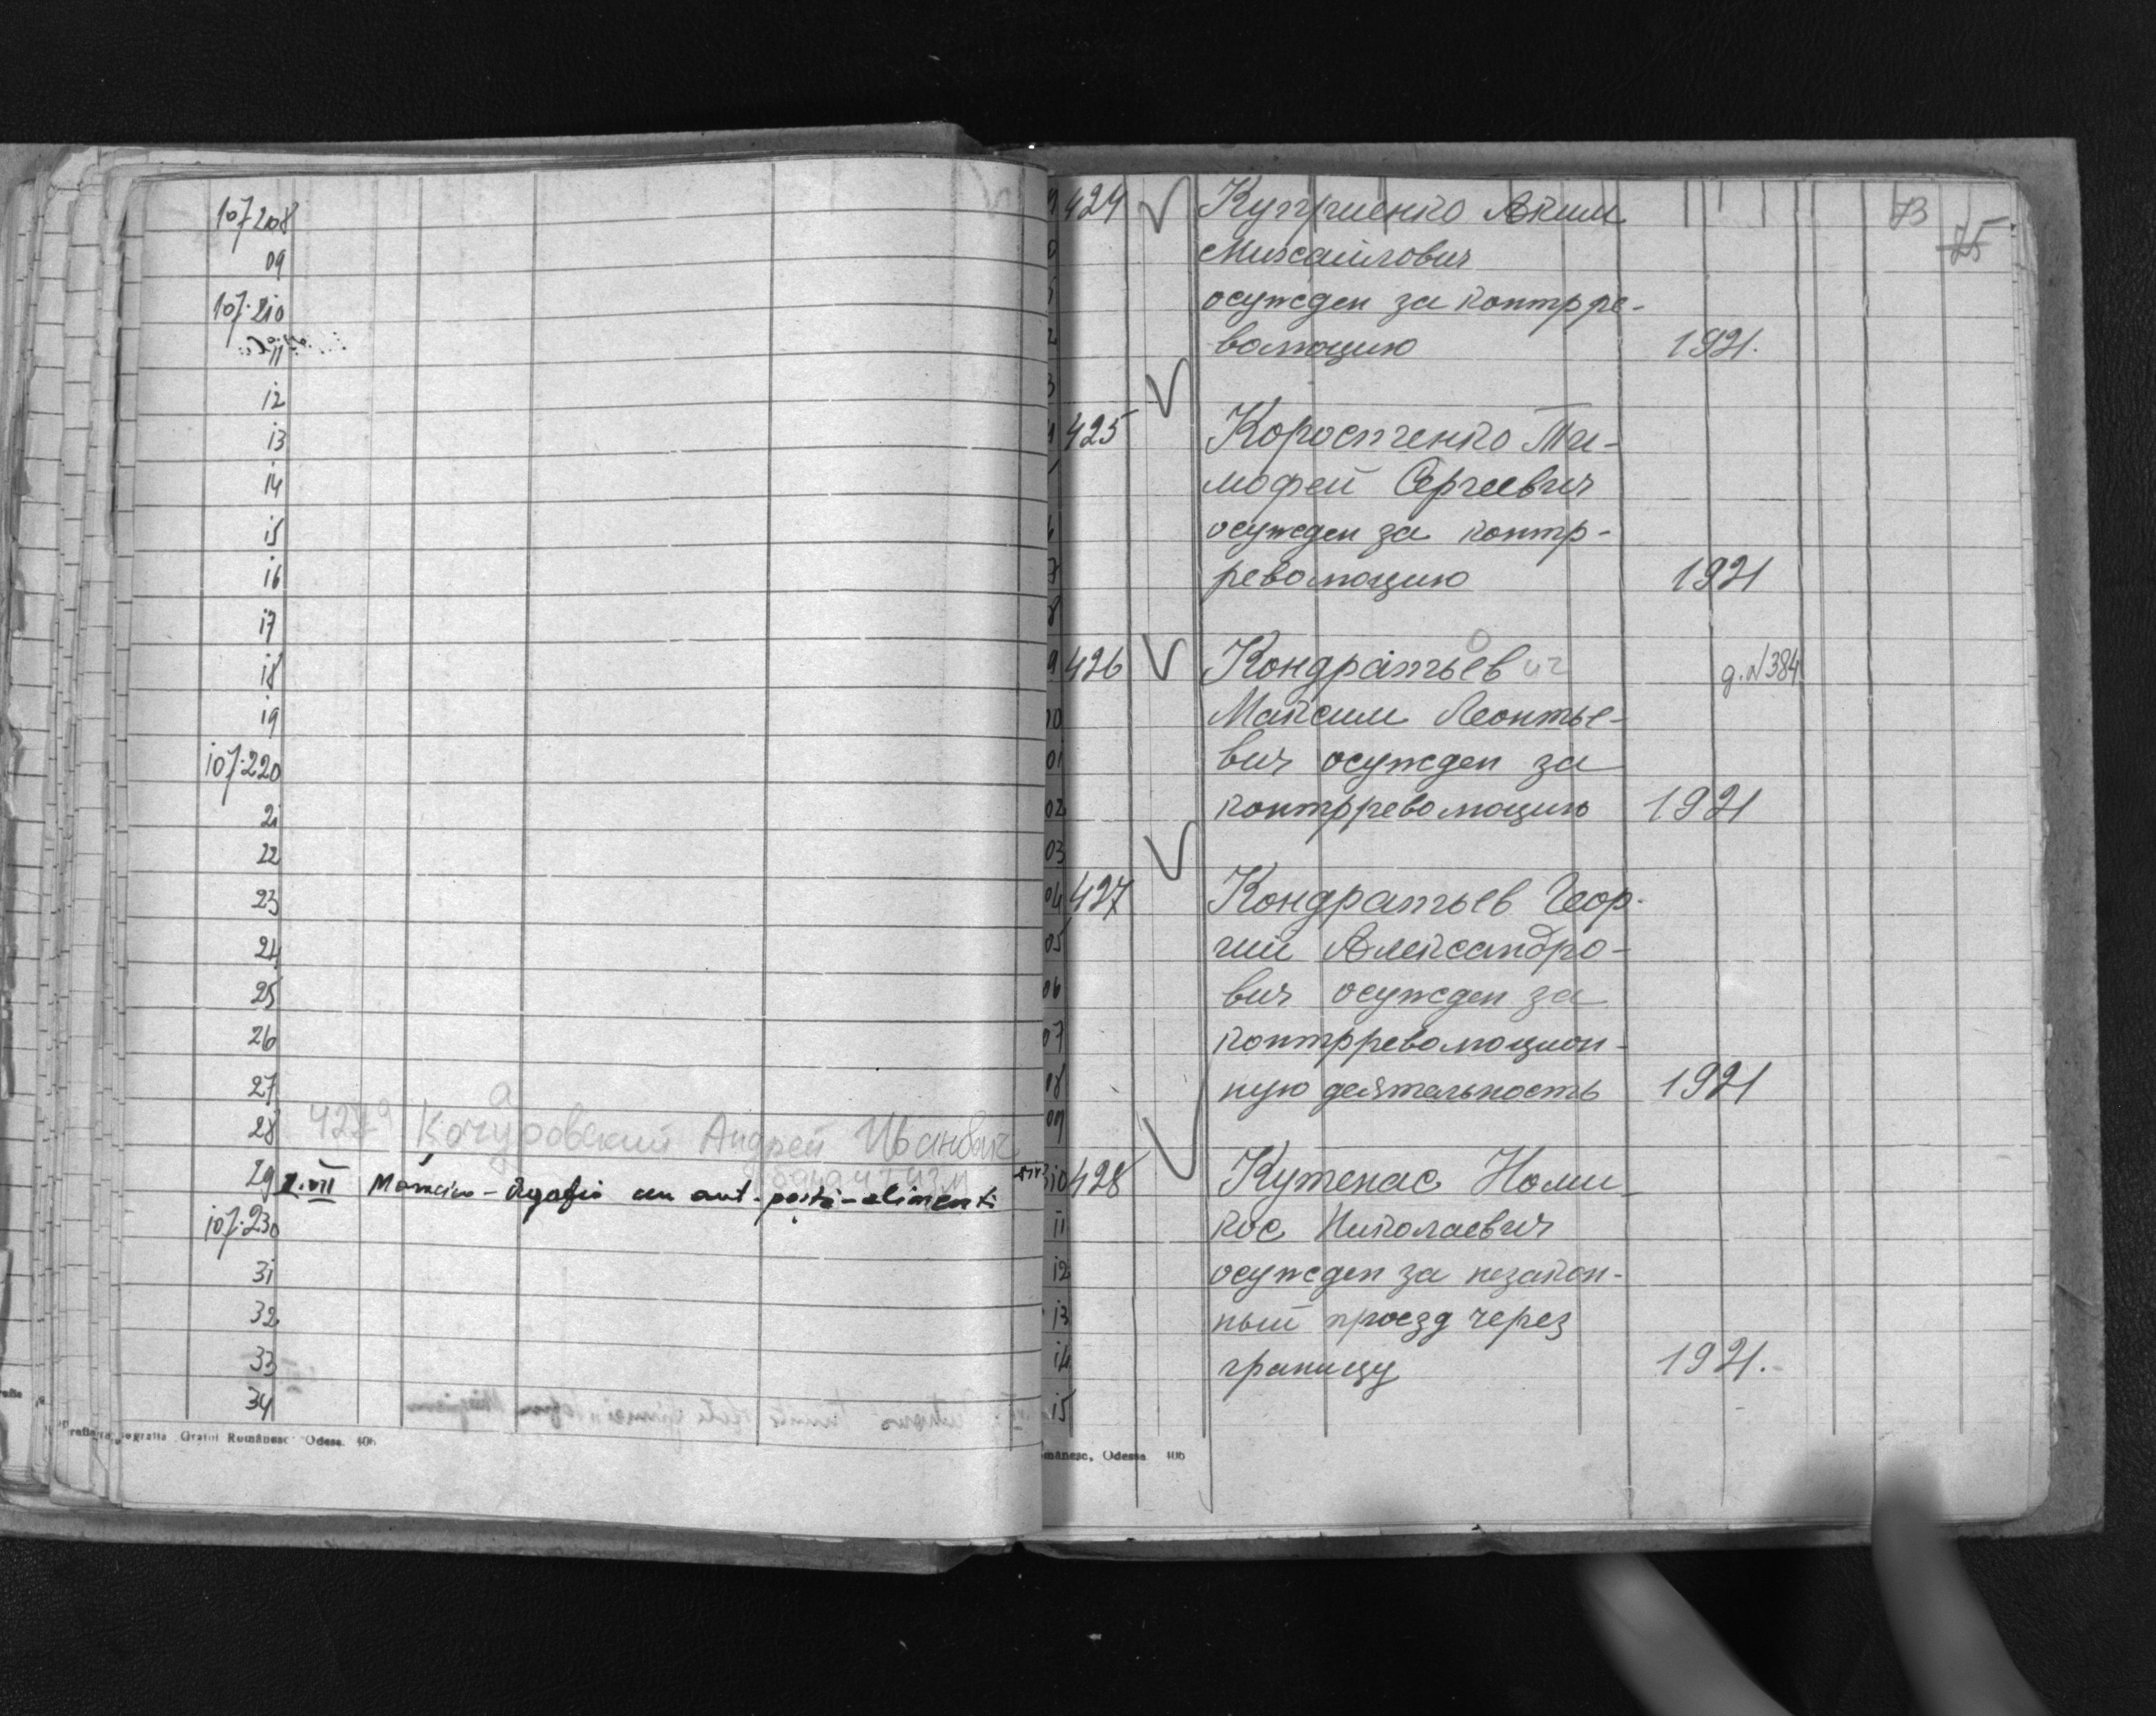 107208
09
107.210
11
12
13
14
15
16
17
18
19
107.220
21
22
23
24
25
26
27
28 427а Качуровский Андрей Иванович
бандитизм
29 I.VII
107.230
31
32
33
34
Graiul Românesc Odesa 406
73
75
424 Куприенко Аким
Михайлович
осужден за контрре-
волюцию 1921.
425 Коростченко Ти-
мофей Сергеевич
осужден за контр-
революцию 1921
426 Кондратьевич д.N384
Максим Леонтье-
вич осужден за
контрреволюцию 1921
427 Кондратьев Геор-
гий Александро-
вич осужден за
контрреволюцион-
ную деятельность 1921
428 Кутенас Номи-
кос Николаевич
осужден за незакон-
ный проезд через
границу 1921.
mânesc, Odessa 406